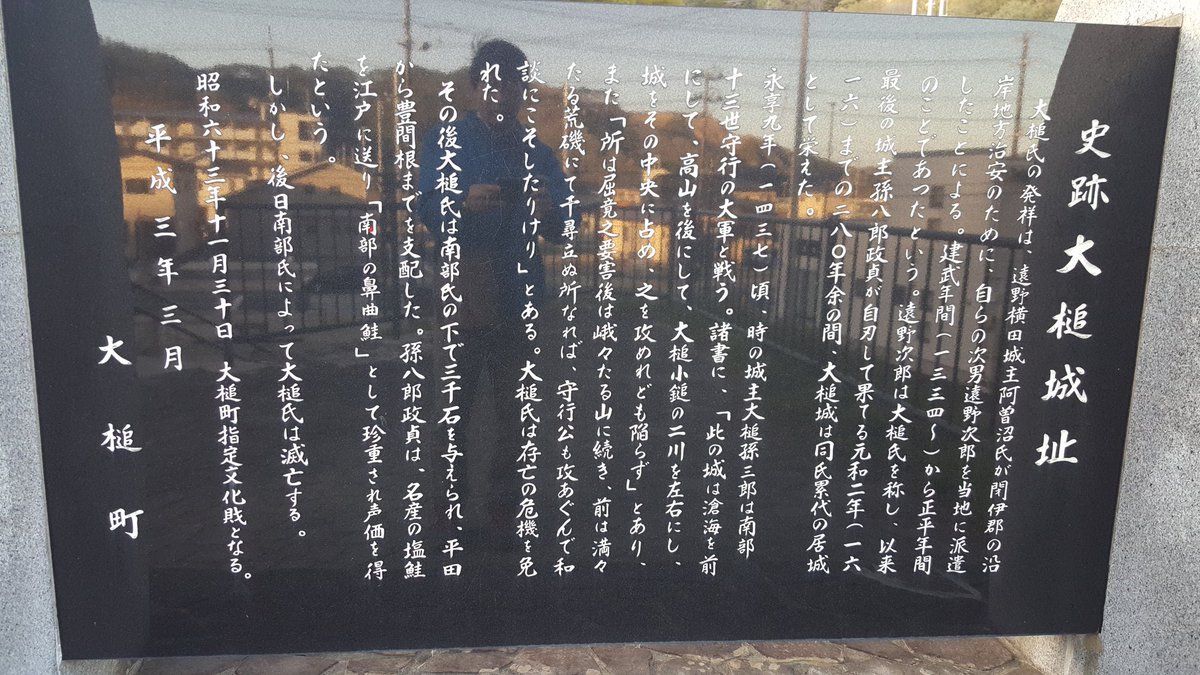 史跡大槌城址
大槌氏の発祥は、遠野横田城主阿曽沼氏が閉伊郡の沿
岸地方治安のために、自らの次男遠野次郎を当地に派遣
したことによる。建武年間(一三三四～)から正平年間
のことであったという。遠野次郎は大槌氏を称し、以来
最後の城主孫八郎政貞が自刃して果てる元和二年(一六
一六)までの二八〇年余の間、大槌城は同氏累代の居城
として栄えた。
永享九年(一四三七)頃、時の城主大槌孫三郎は南部
十三世守行の大軍と戦う。諸書に、「此の城は滄海を前
にして、高山を後にして、大槌小鎚の二川を左右にし、
城をその中央に占め、之を攻めれども陥らず」とあり、
また「所は屈竟之要害後は峨々たる山に続き、前は満々
たる荒磯にて千尋立ぬ所なれば、守行公も攻あぐんで和
談にこそしたりけり」とある。大槌氏は存亡の危機を免
れた。
その後大槌氏は南部氏の下で三千石を与えられ、平田
から豊間根までを支配した。孫八郎政貞は、名産の塩鮭
を江戸に送り「南部の鼻曲鮭」として珍重され声価を得
たという。
しかし、後日南部氏によって大槌氏は滅亡する。
昭和六十三年十一月三十日 大槌町指定文化財となる。
平成三年三月
大槌町